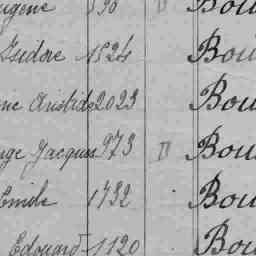 Eugène 590 D Bou
Isidore 1524 Bou
Aristide 2023 Bou
Jacques 973 D Bou
Emile 1732 Bou
Edouard 1120 Bou